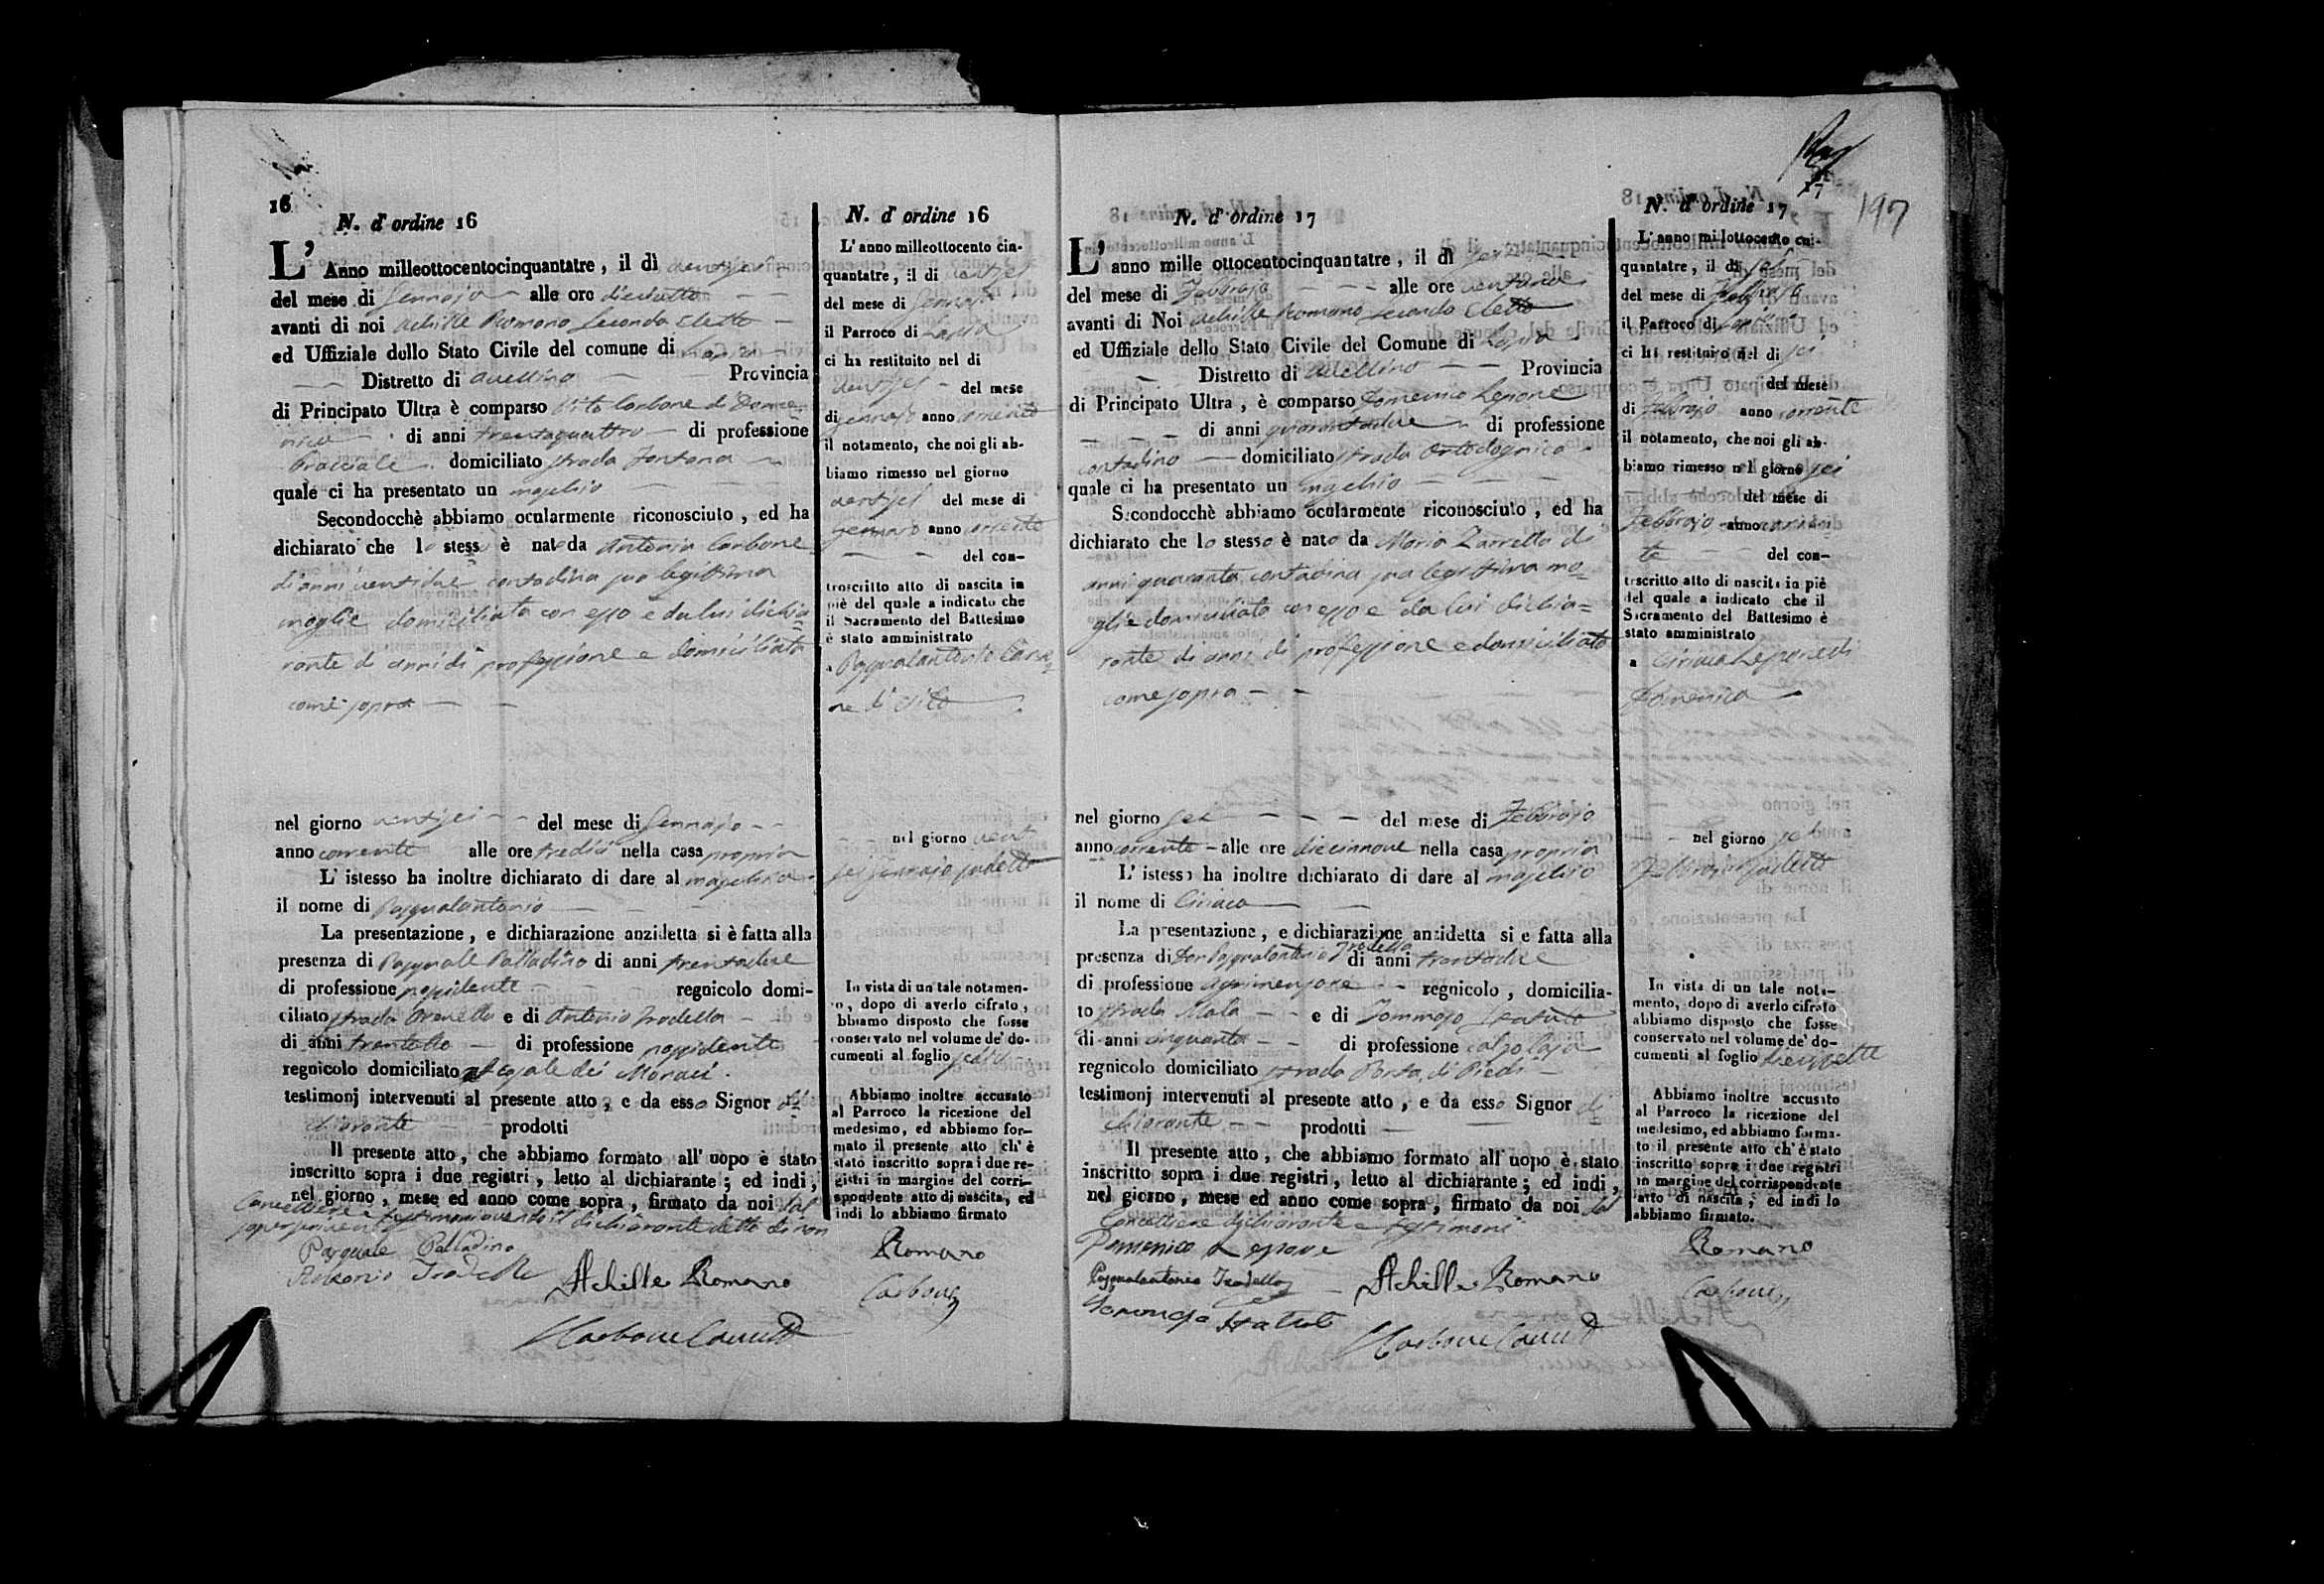 16
N. d' ordine 16
L' Anno milleottocentocinquantatre, il dì ventisei
del mese di Gennajo alle ore dieciotto
avanti di noi Achille Romano Secondo Eletto
ed Uffiziale dello Stato Civile del comune di Lapio
Distretto di Avellino Provincia
di Principato Ultra è comparso Vito Carbone di Dome=
nico di anni trentaquattro di professione
bracciale domiciliato strada Fontana
quale ci ha presentato un maschio
Secondocchè abbiamo ocularmente riconosciuto, ed ha
dichiarato che lo stesso è nato da Antonia Carbone
di anni ventidue contadina sua legittima
moglie domiciliata con esso e da lui dichia=
rante di anni di professione e domiciliato
come sopra
nel giorno ventisei del mese di Gennajo
anno corrente alle ore tredici nella casa propria
L' istesso ha inoltre dichiarato di dare al maschio
il nome di Pasqualantonio
La presentazione, e dichiarazione anzidetta si è fatta alla
presenza di Pasquale Palladino di anni trentadue
di professione possidente regnicolo domi-
ciliato strada e di Antonio Trodella
di anni trentotto di professione possidente
regnicolo domiciliato Casale dei Monaci.
testimonj intervenuti al presente atto, e da esso Signor di=
chiarante prodotti
Il presente atto, che abbiamo formato all' uopo è stato
inscritto sopra i due registri, letto al dichiarante; ed indi,
nel giorno, mese ed anno come sopra, firmato da noi dal
Cancelliere e testimoni avendo il dichiarante detto di non
saper scrivere
Pasquale Palladino
Antonio Trodella Achille Romano
Carbone Canc.
N. d' ordine 16
L' anno milleottocento cin-
quantatre, il dì ventisei
del mese di Gennajo
il Parroco di Lapio
ci ha restituito nel dì
ventisei del mese
di Gennajo anno corrente
il notamento, che noi gli ab-
biamo rimesso nel giorno
ventisei del mese di
Gennajo anno corrente
del con-
troscritto atto di nascita in
piè del quale a indicato che
il Sacramento del Battesimo
è stato amministrato
a Pasqualantonio Carbo=
ne di Vito
nel giorno venti
sei Gennajo sudetto
In vista di un tale notamen-
to, dopo di averlo cifrato,
abbiamo disposto che fosse
conservato nel volume de' do-
cumenti al foglio sedici
Abbiamo inoltre accusato
al Parroco la ricezione del
medesimo, ed abbiamo for-
mato il presente atto ch' è
stato inscritto sopra i due re-
gistri in margine del corri-
spondente atto di nascita, ed
indi lo abbiamo firmato
Romano
Carbone
17
197
N. d' ordine 17
L' anno mille ottocentocinquantatre, il dì sei
del mese di Febbrajo alle ore ventuno
avanti di Noi Achille Romano Secondo Eletto
ed Uffiziale dello Stato Civile del Comune di Lapio
Distretto di Avellino Provincia
di Principato Ultra, è comparso Domenico Lepore
di anni quarantadue di professione
contadino domiciliato strada
quale ci ha presentato un maschio
Secondocchè abbiamo ocularmente riconosciuto, ed ha
dichiarato che lo stesso è nato da Maria Zarrella di
anni quaranta contadina sua legittima mo=
glie domiciliata con esso e da lui dichia=
rante di anni di professione e domiciliato
come sopra
nel giorno sei del mese di Febbrajo
anno corrente alle ore diecinnove nella casa propria
L' istesso ha inoltre dichiarato di dare al maschio
il nome di Ciriaco
La presentazione, e dichiarazione anzidetta si e fatta alla
presenza di Don Pasqualantonio Trodella di anni trentadue
di professione agrimensore regnicolo, domicilia-
to strada Mala e di Tommaso Statuto
di anni cinquanta di professione calzolajo
regnicolo domiciliato strada Porta di Piedi
testimonj intervenuti al presente atto, e da esso Signor di
chiarante prodotti
Il presente atto, che abbiamo formato all' uopo è stato
inscritto sopra i due registri, letto al dichiarante; ed indi,
nel giorno, mese ed anno come sopra, firmato da noi dal
Cancelliere dichiarante e testimoni
Domenico Lepore
Pasqualantonio Trodella Achille Romano
Tomaso Statuto
Carbone Canc.
N. d' ordine 17
L' anno millottocento cin-
quantatre, il dì sei
del mese di Febbrajo
il Parroco di Lapio
ci ha restituito nel dì sei
del mese
di Febbrajo anno corrente
il notamento, che noi gli ab-
biamo rimesso nel giorno sei
del mese di
Febbrajo anno corren=
te del con-
troscritto atto di nascita in piè
del quale a indicato che il
Sacramento del Battesimo è
stato amministrato
a Ciriaco Lepore di
Domenico
nel giorno sei
Febbrajo sudetto
In vista di un tale nota-
mento, dopo di averlo cifrato
abbiamo disposto che fosse
conservato nel volume de' do-
cumenti al foglio diecisette
Abbiamo inoltre accusato
al Parroco la ricezione del
medesimo, ed abbiamo forma-
to il presente atto ch' è stato
inscritto sopra i due registri
in margine del corrispondente
atto di nascita, ed indi lo
abbiamo firmato.
Romano
Carbone